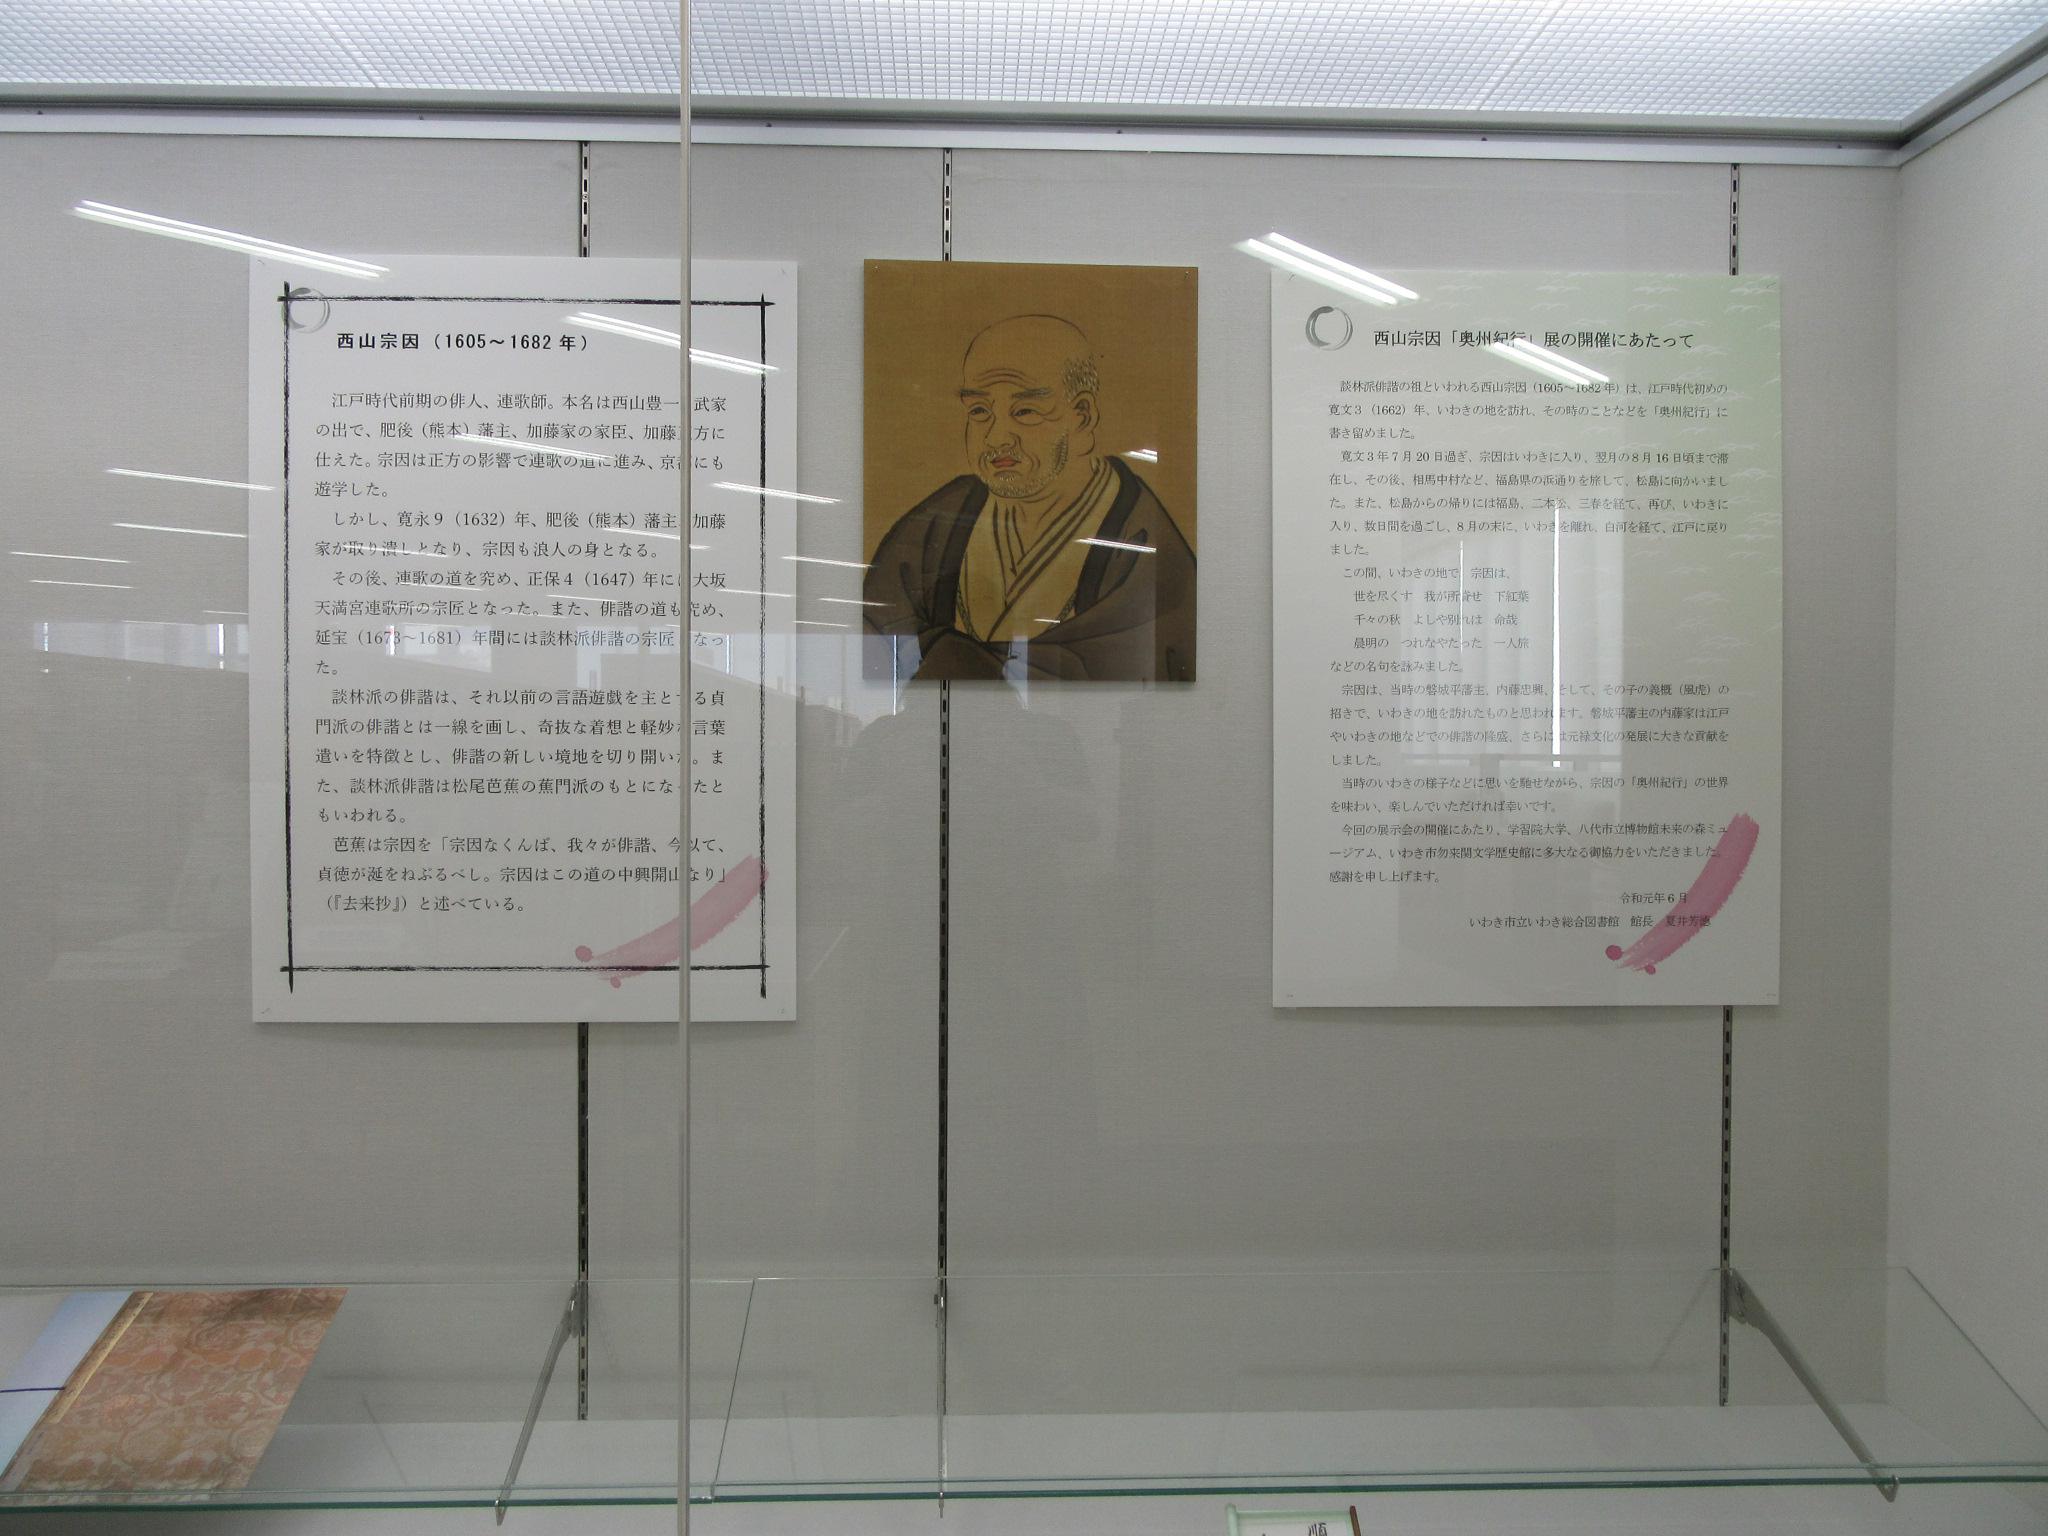 西山宗因（1605～1682 年）
江戸時代前期の俳人、連歌師。本名は西山豊一 武家
の出で、肥後（熊本）藩主、加藤家の家臣、加藤 方に
仕えた。宗因は正方の影響で連歌の道に進み、京都にも
遊学した。
しかし、寛永９（1632）年、肥後（熊本）藩主、加藤
家が取り潰しとなり、宗因も浪人の身となる。
その後、連歌の道を究め、正保４（1647）年には大坂
天満宮連歌所の宗匠となった。また、俳諧の道も究め、
延宝（1673～1681）年間には談林派俳諧の宗匠 なっ
た。
談林派の俳諧は、それ以前の言語遊戯を主とする貞
門派の俳諧とは一線を画し、奇抜な着想と軽妙な言葉
遣いを特徴とし、俳諧の新しい境地を切り開いた。ま
た、談林派俳諧は松尾芭蕉の蕉門派のもとになったと
もいわれる。
芭蕉は宗因を「宗因なくんば、我々が俳諧、今以て、
貞徳が涎をねぶるべし。宗因はこの道の中興開山なり」
（『去来抄』）と述べている。
西山宗因「奥州紀行」展の開催にあたって
談林派俳諧の祖といわれる西山宗因（1605～1682 年）は、江戸時代初めの
寛文３（1662）年、いわきの地を訪れ、その時のことなどを「奥州紀行」に
書き留めました。
寛文３年７月 20 日過ぎ、宗因はいわきに入り、翌月の８月 16 日頃まで滞
在し、その後、相馬中村など、福島県の浜通りを旅して、松島に向かいまし
た。また、松島からの帰りには福島、二本松、三春を経て、再び、いわきに
入り、数日間を過ごし、８月の末に、いわきを離れ、白河を経て、江戸に戻り
ました。
この間、いわきの地で、宗因は、
世を尽くす 我が所寄せ 下紅葉
千々の秋 よしや別れは 命哉
晨明の つれなやたった 一人旅
などの名句を詠みました。
宗因は、当時の磐城平藩主、内藤忠興、そして、その子の義概（風虎）の
招きで、いわきの地を訪れたものと思われます。磐城平藩主の内藤家は江戸
やいわきの地などでの俳諧の隆盛、さらには元禄文化の発展に大きな貢献を
しました。
当時のいわきの様子などに思いを馳せながら、宗因の「奥州紀行」の世界
を味わい、楽しんでいただければ幸いです。
今回の展示会の開催にあたり、学習院大学、八代市立博物館未来の森ミュ
ージアム、いわき市勿来関文学歴史館に多大なる御協力をいただきました。
感謝を申し上げます。
令和元年６月
いわき市立いわき総合図書館 館長 夏井芳徳
順